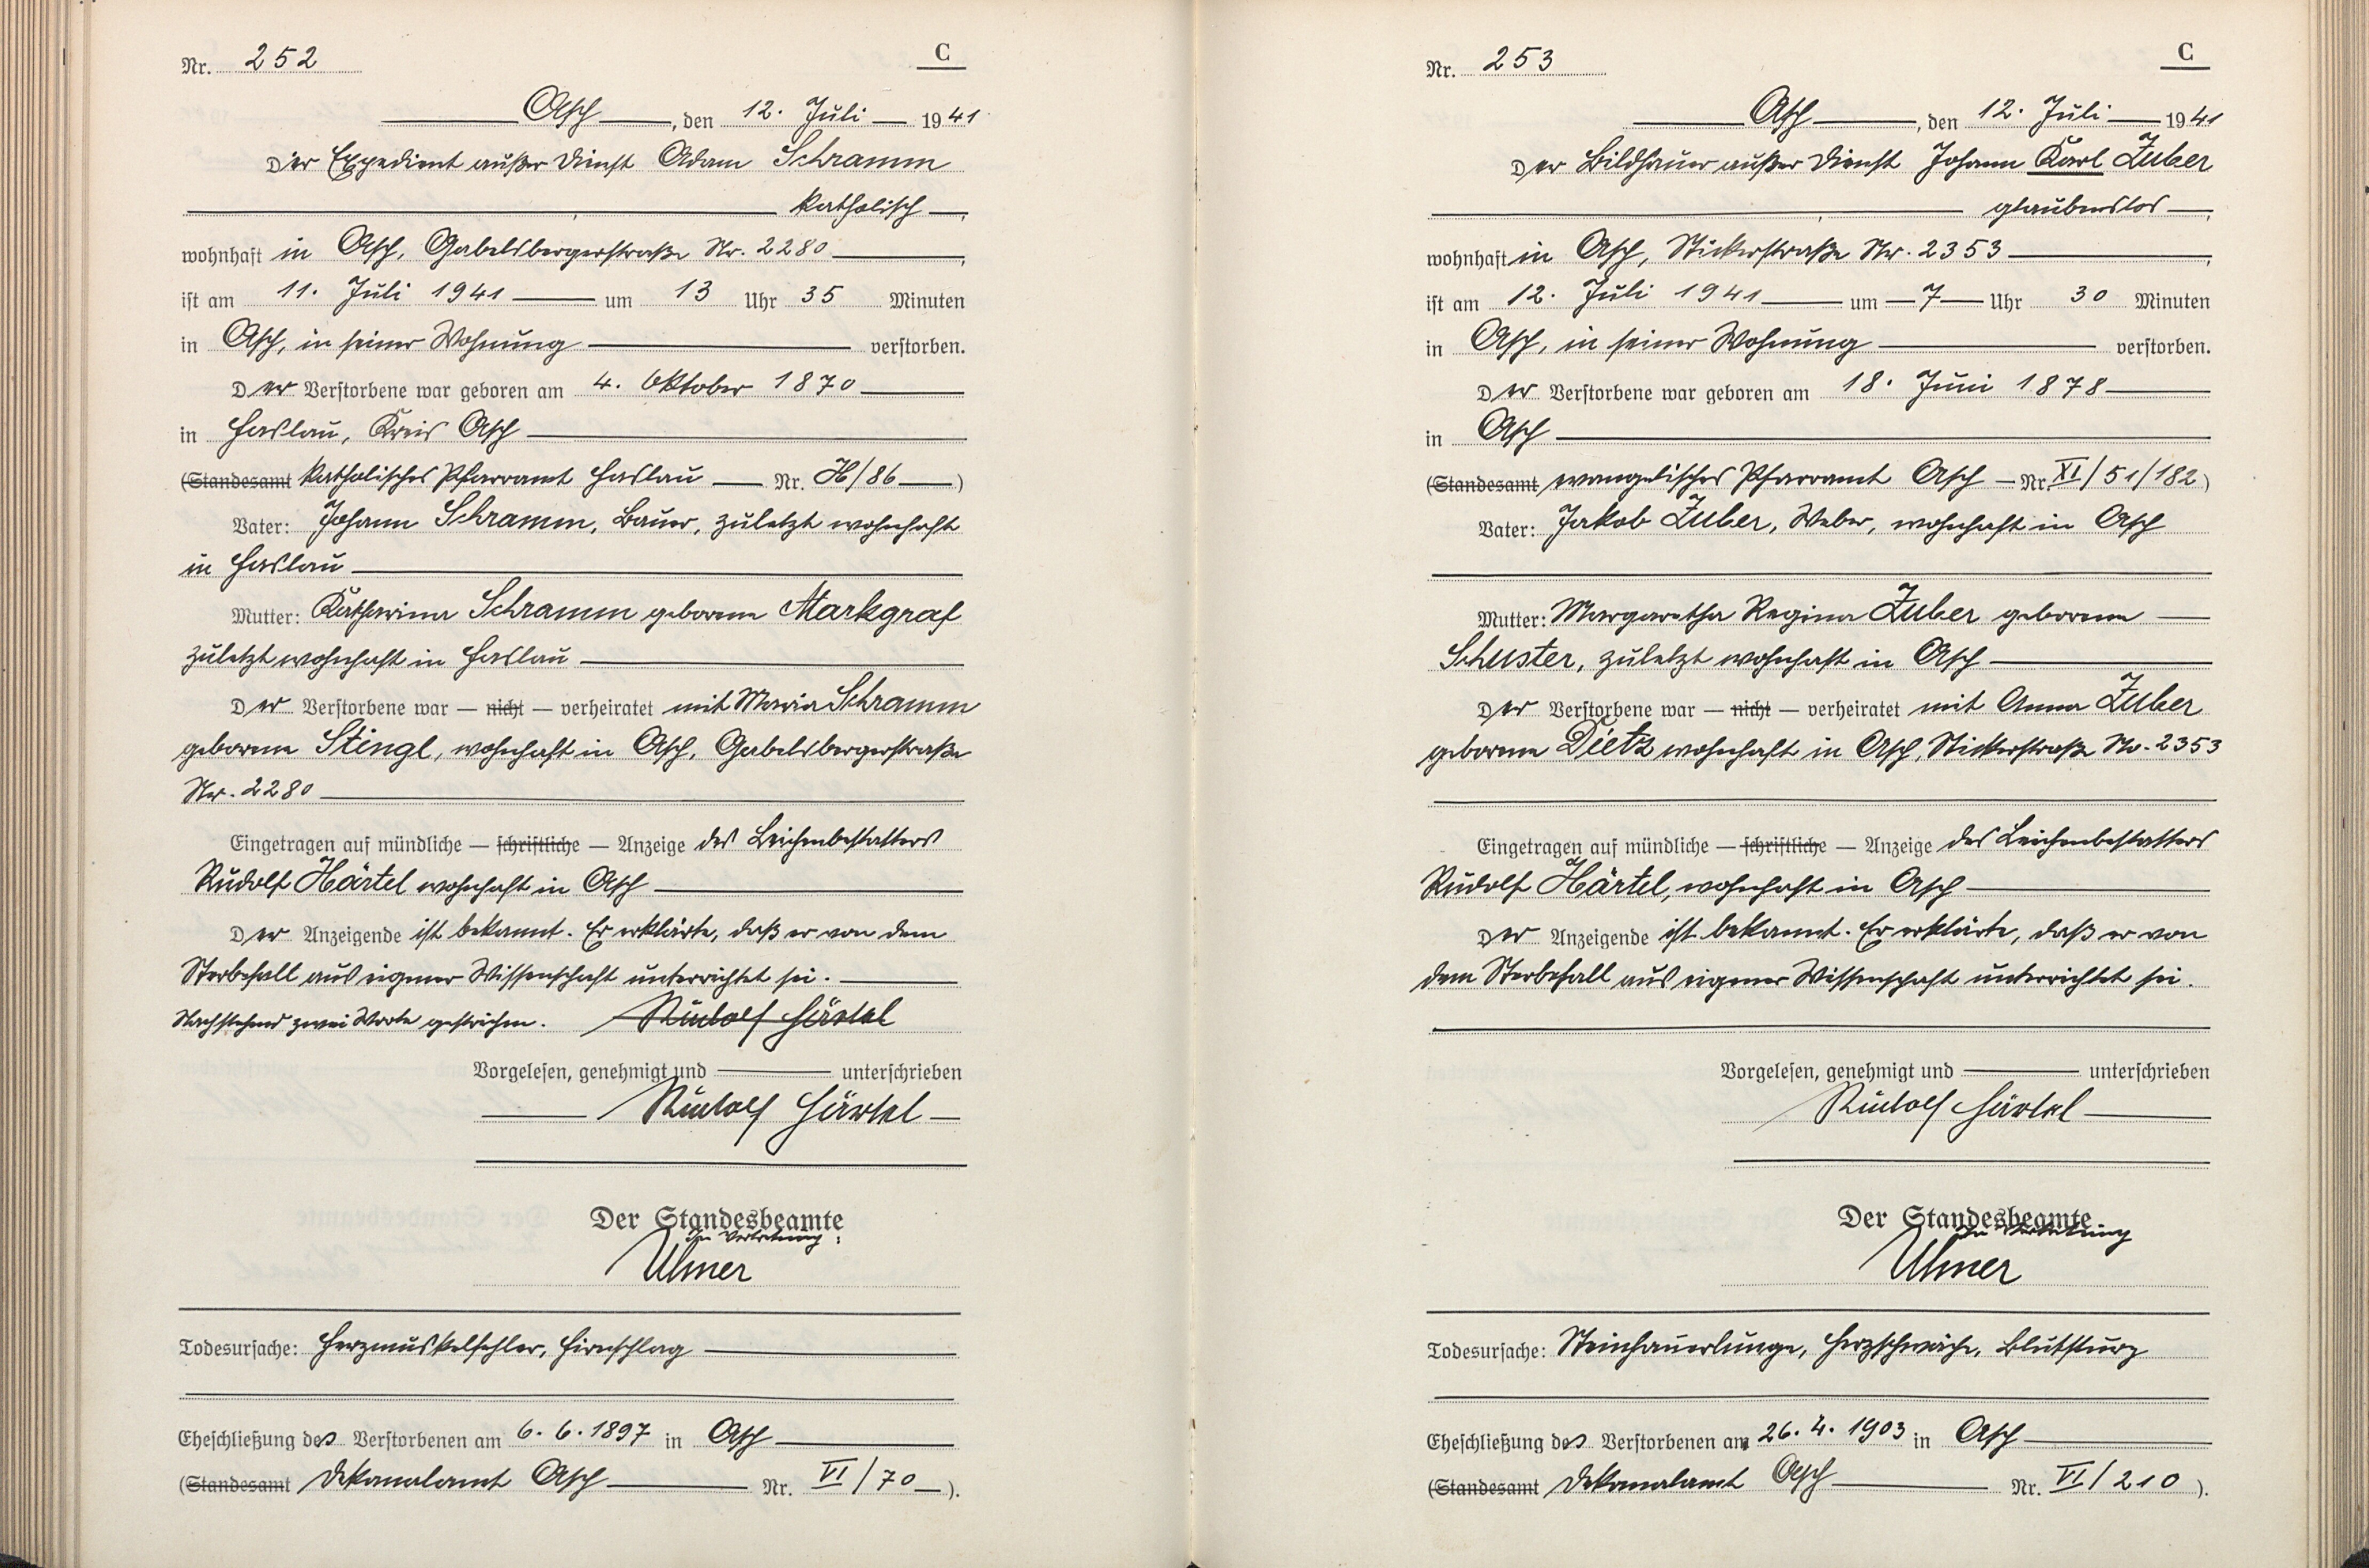 Nr. 252
C
Asch, den 12. Juli 1941
Der Expedient außer Dienst Adam Schramm
katholisch,
wohnhaft in Asch, Gabelsbergerstraße Nr. 2280,
ist am 11. Juli 1941 um 13 Uhr 35 Minuten
in Asch, in seiner Wohnung verstorben.
Der Verstorbene war geboren am 4. Oktober 1870
in Haslau, Kreis Asch
(Standesamt katholisches Pfarramt Haslau Nr. H/86)
Vater: Johann Schramm, Bauer, zuletzt wohnhaft
in Haslau
Mutter: Katharina Schramm geborene Markgraf
zuletzt wohnhaft in Haslau
Der Verstorbene war — nicht — verheiratet mit Maria Schramm
geborene Stingl, wohnhaft in Asch, Gabelsbergerstraße
Nr. 2280
Eingetragen auf mündliche — schriftliche — Anzeige des Leichenbestatters
Rudolf Härtel wohnhaft in Asch
Der Anzeigende ist bekannt. Er erklärte, daß er von dem
Sterbefall aus eigener Wissenschaft unterrichtet sei.
Nachstehend zwei Worte gestrichen. Rudolf Härtel
Vorgelesen, genehmigt und unterschrieben
Rudolf Härtel
Der Standesbeamte
In Vertretung:
Ulmer
Todesursache: Herzmuskelfehler, Hirnschlag
Eheschließung des Verstorbenen am 6. 6. 1897 in Asch
(Standesamt Dekanalamt Asch Nr. VI/70).
Nr. 253
C
Asch, den 12. Juli 1941
Der Bildhauer außer Dienst Johann Karl Zuber
glaubenslos,
wohnhaft in Asch, Stickerstraße Nr. 2353,
ist am 12. Juli 1941 um 7 Uhr 30 Minuten
in Asch, in seiner Wohnung verstorben.
Der Verstorbene war geboren am 18. Juni 1878
in Asch
(Standesamt evangelisches Pfarramt Asch Nr. XI/51/182)
Vater: Jakob Zuber, Weber, wohnhaft in Asch
Mutter: Margaretha Regina Zuber geborene
Schuster, zuletzt wohnhaft in Asch
Der Verstorbene war — nicht — verheiratet mit Anna Zuber
geborene Dietz wohnhaft in Asch, Stickerstraße Nr. 2353
Eingetragen auf mündliche — schriftliche — Anzeige des Leichenbestatters
Rudolf Härtel, wohnhaft in Asch
Der Anzeigende ist bekannt. Er erklärte, daß er von
dem Sterbefall aus eigener Wissenschaft unterrichtet sei.
Vorgelesen, genehmigt und unterschrieben
Rudolf Härtel
Der Standesbeamte
In Vertretung
Ulmer
Todesursache: Steinhauerlunge, Herzschwäche, Blutsturz
Eheschließung des Verstorbenen am 26. 4. 1903 in Asch
(Standesamt Dekanalamt Asch Nr. VI/210).